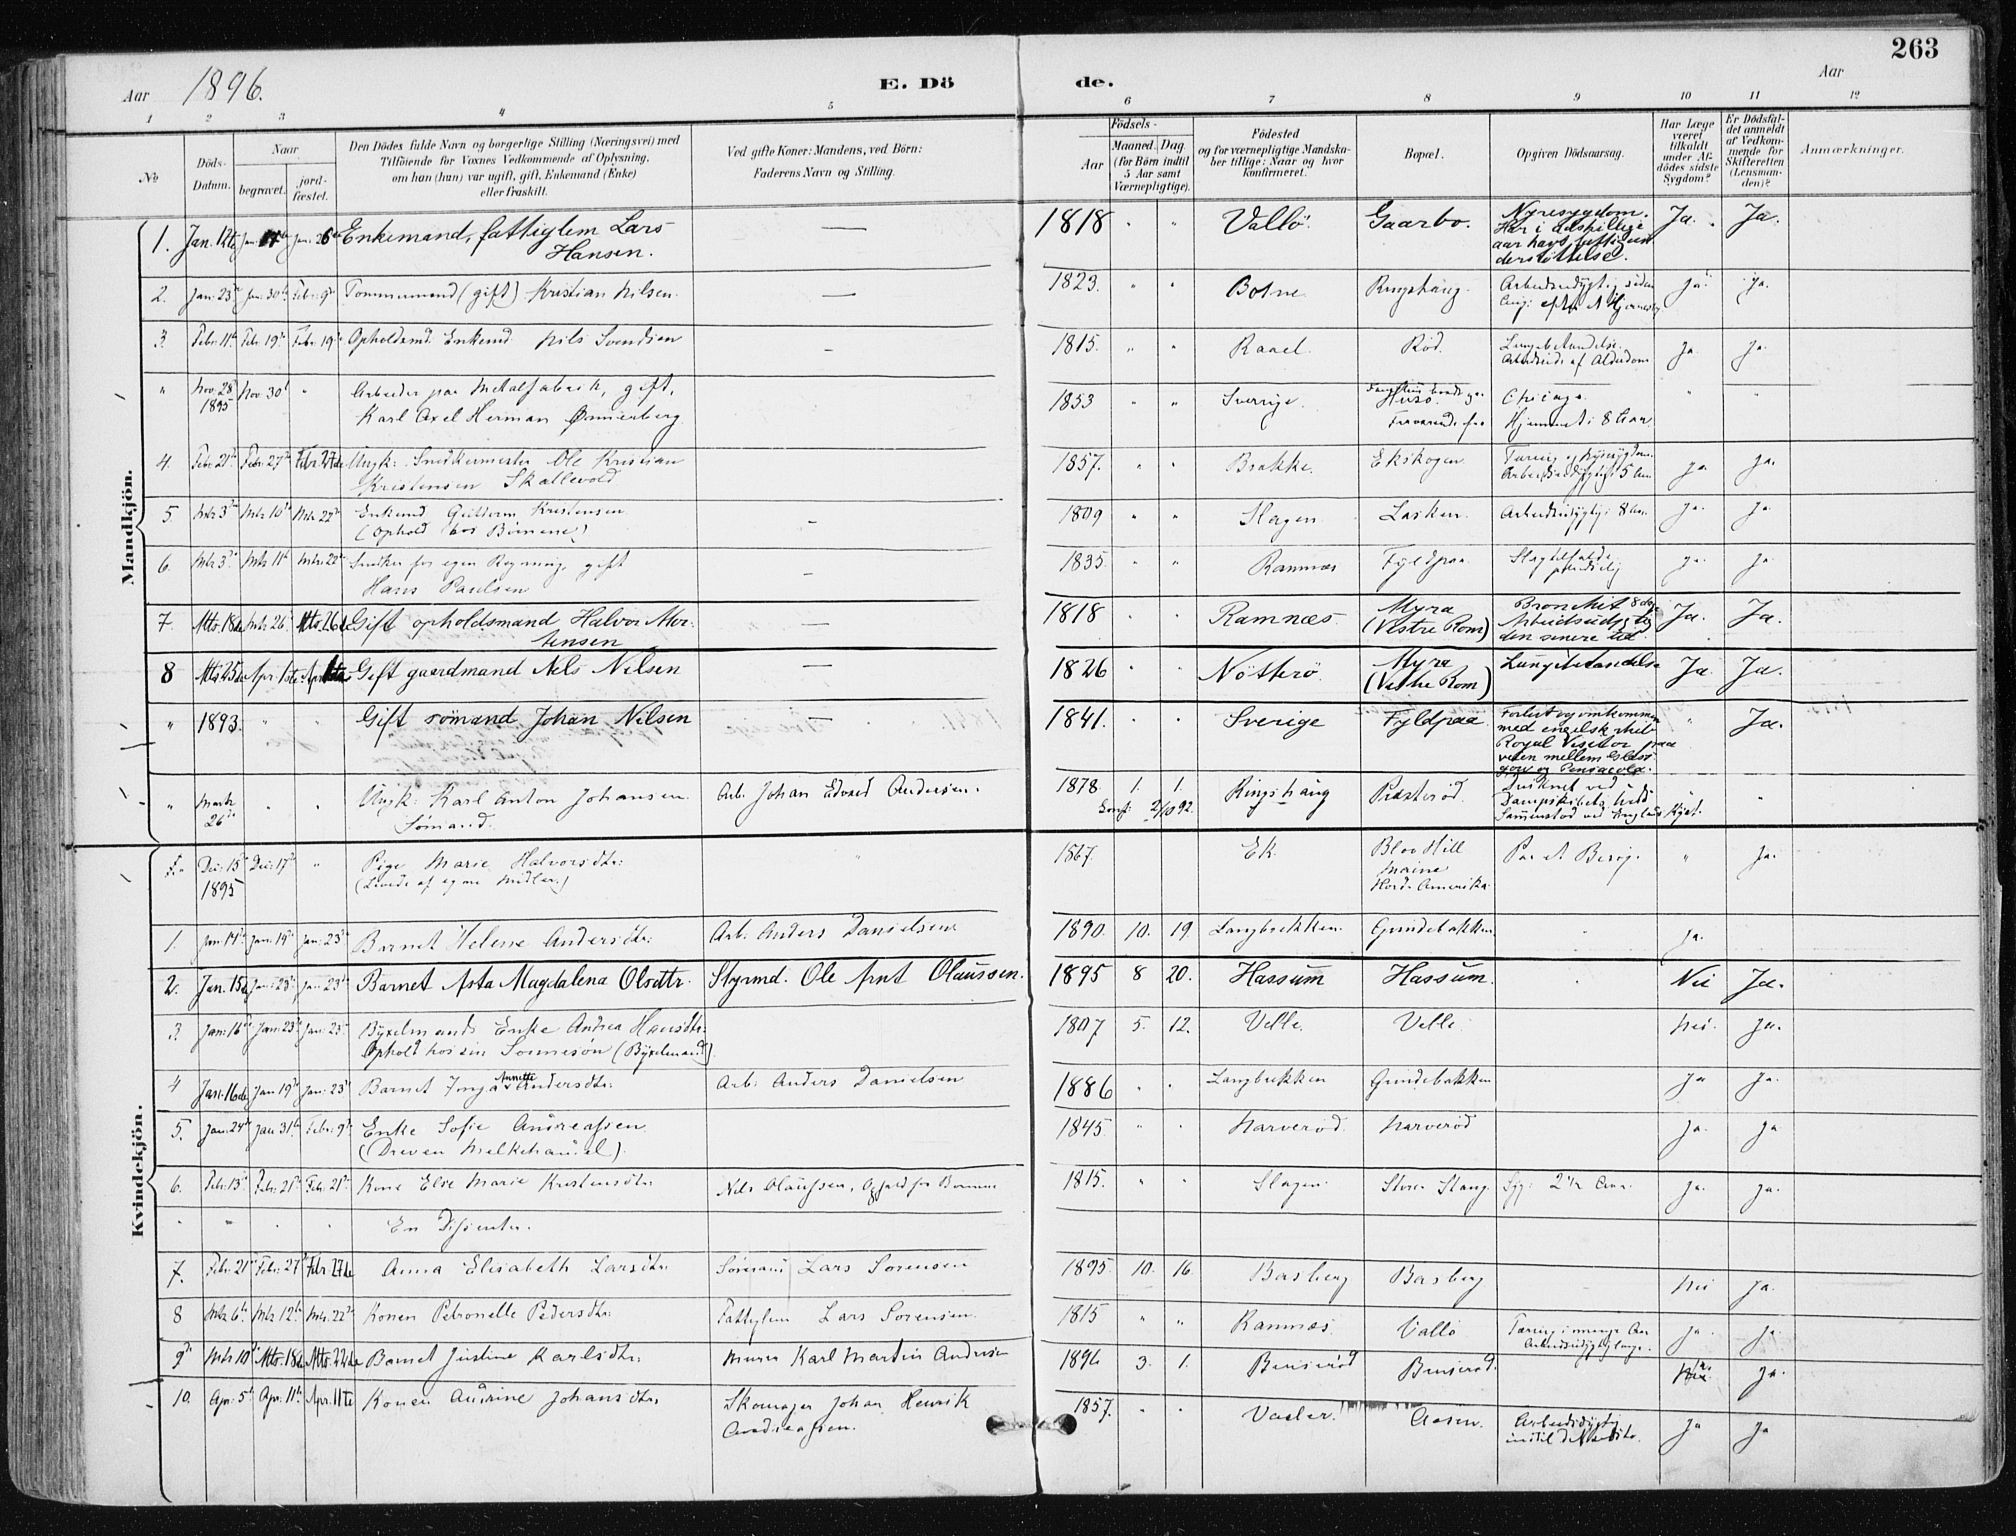 263
Aar 1896. E. Dö de. Aar
1 2 3 4 5 6 7 8 9 10 11 12
№
Döds-Datum.
Naar
begravet.
jord-fæstet.
Den Dödes fulde Navn og borgerlige Stilling (Næringsvei) med
Tilföiende for Voxnes Vedkommende af Oplysning,
om han (hun) var ugift, gift, Enkemand (Enke)
eller fraskilt.
Ved gifte Koner: Mandens, ved Börn:
Faderens Navn og Stilling.
Födsels-
Aar
Maaned. Dag.
(for Börn indtil
5 Aar samt
Værnepligtige).
Födested
og for værnepligtige Mandska-
ber tillige: Naar og hvor
konfirmeret.
Bopæl.
Opgiven Dödsaarsag.
Har Læge
været
tilkaldt
under Af-
dödes sidste
Sygdom?
Er Dödsfal-
det anmeldt
af Vedkom-
mende for
Skifteretten
(Lensman-
den)?
Anmærkninger.
Mandkjön.
1. Jan. 12te Jan. 17de Jan. 26de Enkemand, fattiglem Lars Hansen. — 1818 " " Vallö. Gaarbo. Nyresygdom. Har i adskillige aar havt fattigunderstöttelse. Ja. Ja.
2. Jan: 23de Jan: 30te Febr: 9de Tømmermand (gift) Kristian Nilsen. — 1823. " " Botne Ringshaug. Ja. Ja.
3. Febr: 11te Febr: 19de Febr: 19de Opholdsmd. Enkemd. Nils Svendsen – 1815. " " Raael. Rød. Lungebetændelse. Ja. Ja.
" Nov: 28 1895 Nov: 30te " Arbeider paa Metalfabrik, gift, Karl Axel Herman 1853 " " Sverige. Husø. Hjemmet i 8 Aar. " "
4. Febr: 21de Febr: 27de Febr 27de Ungk: Snedkermester Ole Kristian Kristensen Skallevold 1857. " " Brekke. Ekskogen Tæring og Nyresygdom. 5 Aar. ja ja.
5. Mrtz 3de Mrtz 10de Mrtz 22de Enkemd Guttorm Kristensen. (Ophold hos Børnene) – 1809 " " Slagen. Lasken. Arbeidsudygtig i 8 Aar. ja. ja
6. Mrtz 3de Mrtz 11te Mrtz 22de Snedker for egen Regning, gift Hans Paulsen – 1835. " " Ramnæs Fyldpaa. Slagtilfælde ja. ja.
7. Mts. 18de Mrtz 26 Mts. 26de Gift opholdsmand Halvor Mortensen — 1818 " " Ramnæs. Myra (Vestre Rom) Bronchit 8 dage Arbeidsudygtig den senere tid Ja. Ja.
8 Mts 25de Apr. 1ste Apr. 1ste Gift gaardmand Nils Nilsen — 1826 " " Nötterö. Myra (Vestre Rom) Lungebetændelse Ja. Ja.
" 1893. " " Gift sömand Johan Nilsen — 1841. " " Sverige Fyldpaa. Forlist og omkommen med engelsk skib Royal Visitor paa veien mellem Glasgow og Pensacola. " Ja.
" Mark 26de " " Ungk: Karl Anton Johansen. Sømand. Arb. Johan Edvard Andersen. 1878 1. 1. Konf: 2/10 92. Ringshaug Presterød. Druknet ved Dampskibets Sammenstød ved Englands Kyst. " "
Kvindekjön.
" Dec: 15de 1895 Dec: 17de " Pige Marie Halvorsdtr: (Levede af egne Midler.) " 1867. Ek. Bloo Hill Maine Nord-Amerika. Paa et Besøg. " Ja.
1. Jan: 14de Jan: 19de Jan: 23de Barnet Helene Andersdtr: Arb: Anders Danielsen 1890. 10. 19. Langbrekken. Grindebakken. Ja.
2. Jan. 15de Jan: 23de Jan: 23de Barnet Asta Magdalena Olsdtr. Styrmd. Ole Arnt Olaussen. 1895 8 20. Hassum Hassum. Nei Ja.
3. Jan: 16de Jan: 23de Jan: 23de Byxelmands Enke Andrea Hansdtr: Ophold hos sin Sønnesøn (Byxelmand). 1807 5. 12. Velle. Velle. Nei. Ja.
4 Jan. 16de Jan 19de Jan: 23de Barnet Inga Annette Andersdtr: Arb: Anders Danielsen 1886 " " Langbrekken Grindebakken Ja Ja.
5. Jan: 24de Jan 31te Febr: 9de Enke Sofie Andreassen. (Dreven Melkehandel). 1845. " " Narverød. Narverød Ja. Ja
6. Febr: 13de Febr: 21de Febr: 21de Kone Else Marie Kristensdtr: Nils Olaussen, 1815. " " Slagen. Store Stang. Syg: 2 1/2 Aar. Ja. Ja.
" " " " En Dissenter.
7. Febr: 21de Febr: 27de Febr 27de Anna Elisabeth Larsdtr: Sømand Lars Sørensen 1895 10. 16. Basberg Basberg Nei Ja.
8 Mrtz 6te Mrtz 12te Mrtz 22de Konen Petronelle Pedersdtr: Fattiglem Lars Sørensen. 1815 " " Ramnæs. Vallø Tæring i mange Aar Ja. Ja.
9de Mrtz 10de Mts. 18de Mts. 22de Barnet Justine Karlsdtr: Murer Karl Martin Andersen 1896 3. 1. Bruserød Bruserød. Ja. Ja.
10. Apr: 5te Apr: 11te Apr. 11te Konen Aurine Johansdtr: Skomager Johan Henrik Andreassen. 1857. " " Vaaler. Aasen. Arbeidsdygtig indtil det sidste. Ja Ja